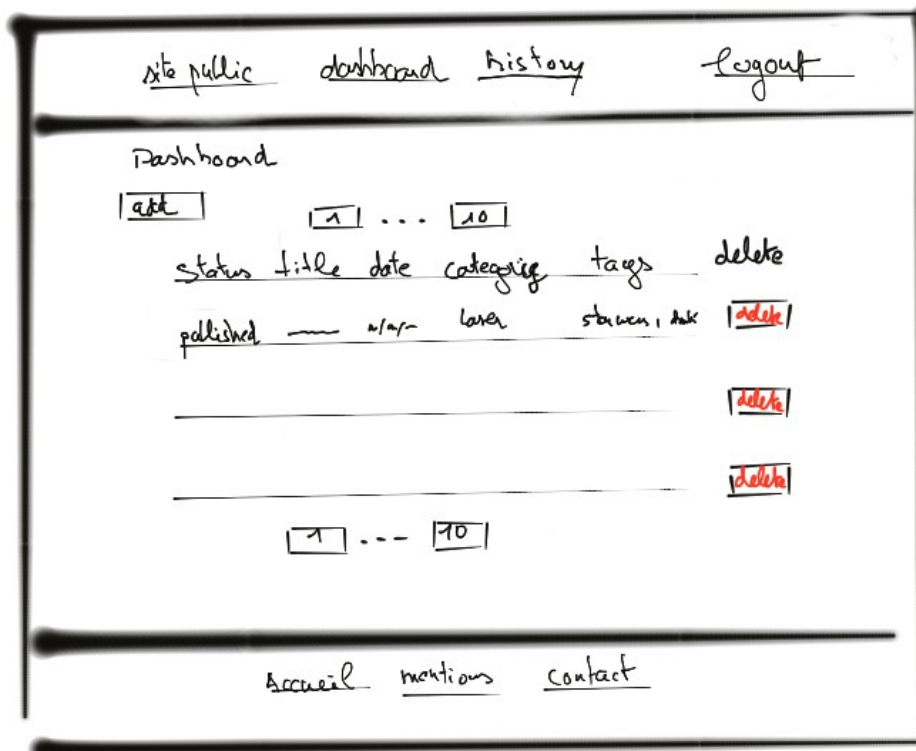 site public dashboard history logout
Dashboard
add
1 ... 10
status title date catégorie tags delete
published laser delete
delete
delete
1 ... 10
Accueil mentions contact